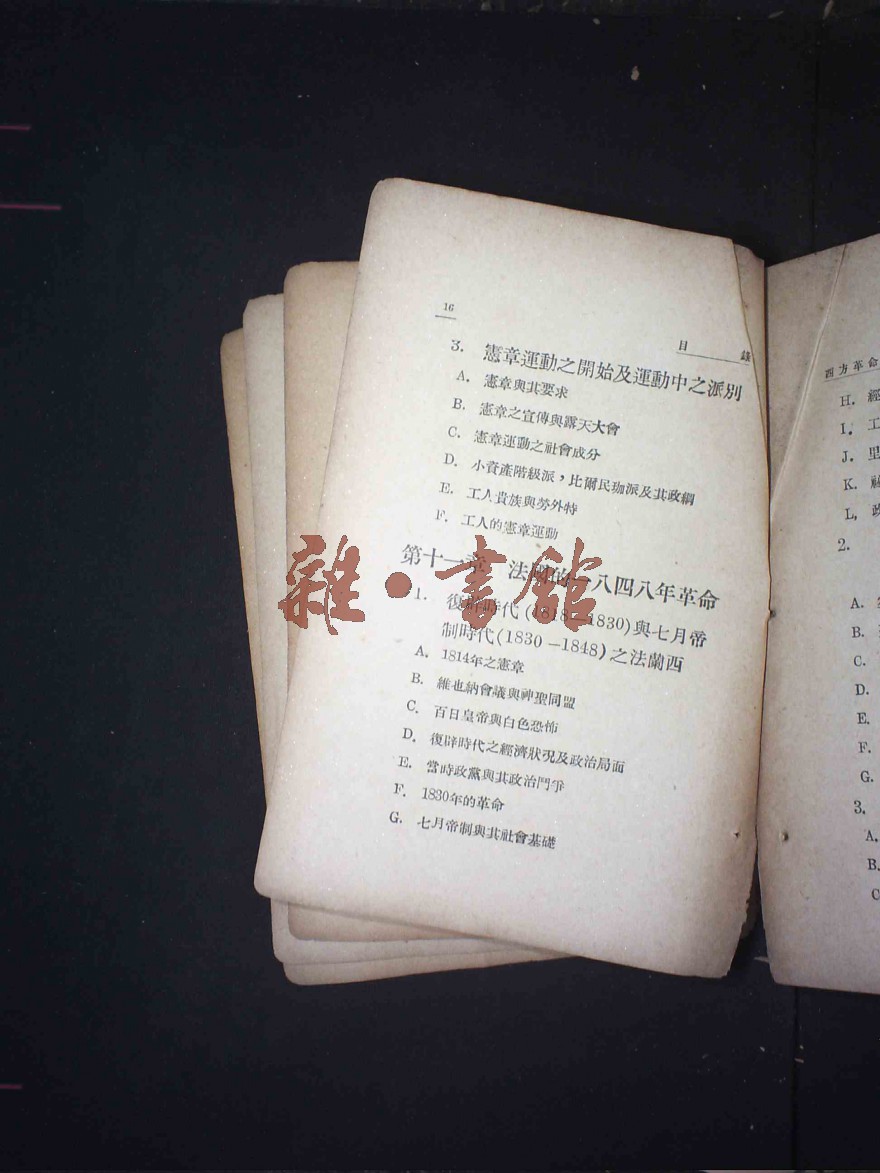 16
目錄
3. 憲章運動之開始及運動中之派別
A. 憲章與其要求
B. 憲章之宣傳與露天大會
C. 憲章運動之社會成分
D. 小資產階級派，比爾民珈派及其政綱
E. 工人貴族與勞外特
F. 工人的憲章運動
第十一章 法國的一八四八年革命
1. 復辟時代(1818—1830)與七月帝
制時代(1830—1848)之法蘭西
A. 1814年之憲章
B. 維也納會議與神聖同盟
C. 百日皇帝與白色恐怖
D. 復辟時代之經濟狀況及政治局面
E. 當時政黨與其政治鬥爭
F. 1830年的革命
G. 七月帝制與其社會基礎
雜·書館
西方革命
H. 經
I. 工
J. 里
K.
L. 政
2.
A.
B.
C.
D.
E.
F.
G.
3.
A.
B.
C